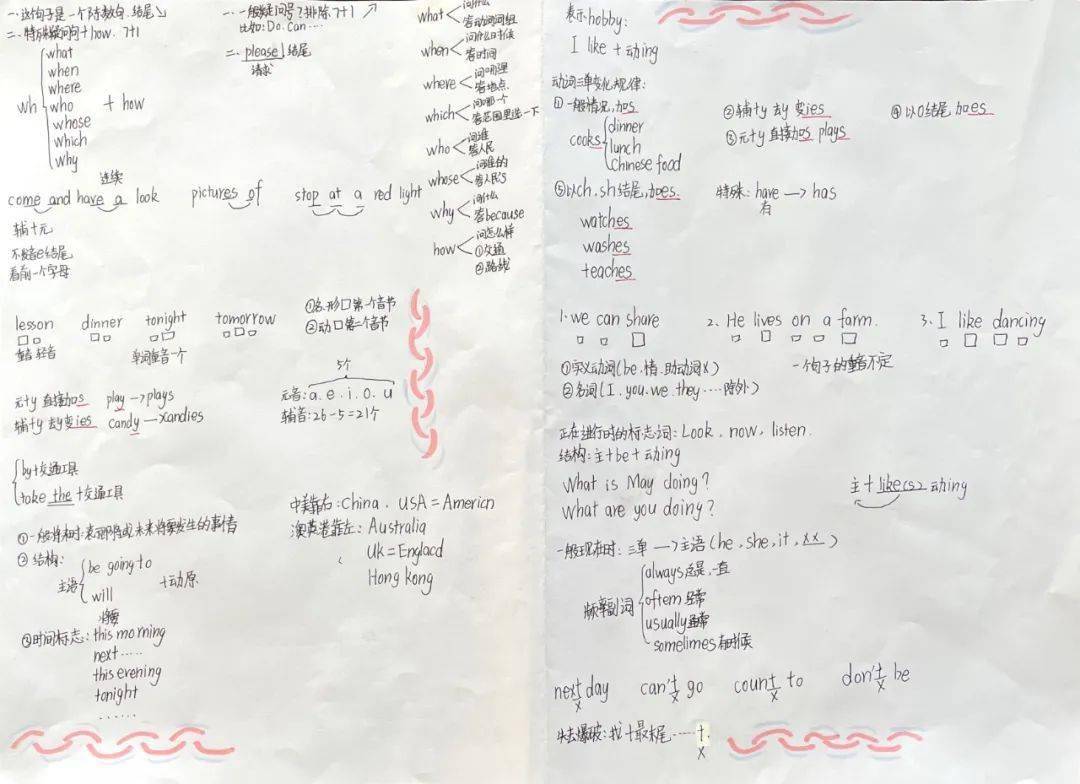 一.这句子是一个陈数句.结尾↘
二.特殊疑问句+how.?+1
wh
what
when
where
who
whose
which
why
+ how
一.一般疑问号?排除.?+1 ↗
比如:Do.Can····
二. please↓结尾
请求
what < 问什么
答动词词组
when < 问什么时候
答时间
where < 问哪里
答地点.
which < 问哪一个
答范围里选一下
who < 问谁
答人民
whose < 问谁的
答人民's
why < 问什么
答because
how < 问怎么样
①交通
②路线
连续
come and have a look pictures of stop at a red light
辅+元
不发音e结尾
看前一个字母
lesson dinner tonight tomorrow
重音 轻音 单词重音一个
①名.形口第一个音节
②动口第二个音节
5个
元音:a.e.i.o.u
辅音:26-5=21个
元+y 直接加s play→plays
辅+y 去y变ies candy→xandies
by+交通工具
take the +交通工具
中美靠右:China. USA=Americn
澳英港靠左: Australia
Uk=Englacd
Hong kong
①一般将相时:表那将或未来将要发生的事情
② 结构:
主语 be going to
will
+动原
将要
③时间标志: this morning
next ·····
this erening
tonight
······
表示hobby:
I like + 动ing
动词三单变化规律:
① 一般情况,加s
cooks
dinner
lunch
chinese food
②辅+y 去y 变ies
③元+y 直接加s plays
④以O结尾,加es
⑤以ch.sh结尾,加es.
watches
washes
teaches
特殊: have → has
有
1. we can share 2. He lives on a farm. 3. I like dancing
①实义动词(be.情.助动词X)
②名词(I.you.we.they····除外)
一个句子的重音不定
正在进行时的标志词: Look.now.listen.
结构:主+be+动ing
What is May doing?
what are you doing?
主+like(s)动ing
一般现在时: 三单 → 主语(he.she.it.xx)
频率副词
always总是,一直
oftem 经常
usually通常
somelimes有时候
next day can't go count to don't be
x x x x
失去爆破:找 t最末尾 ····· t.
x